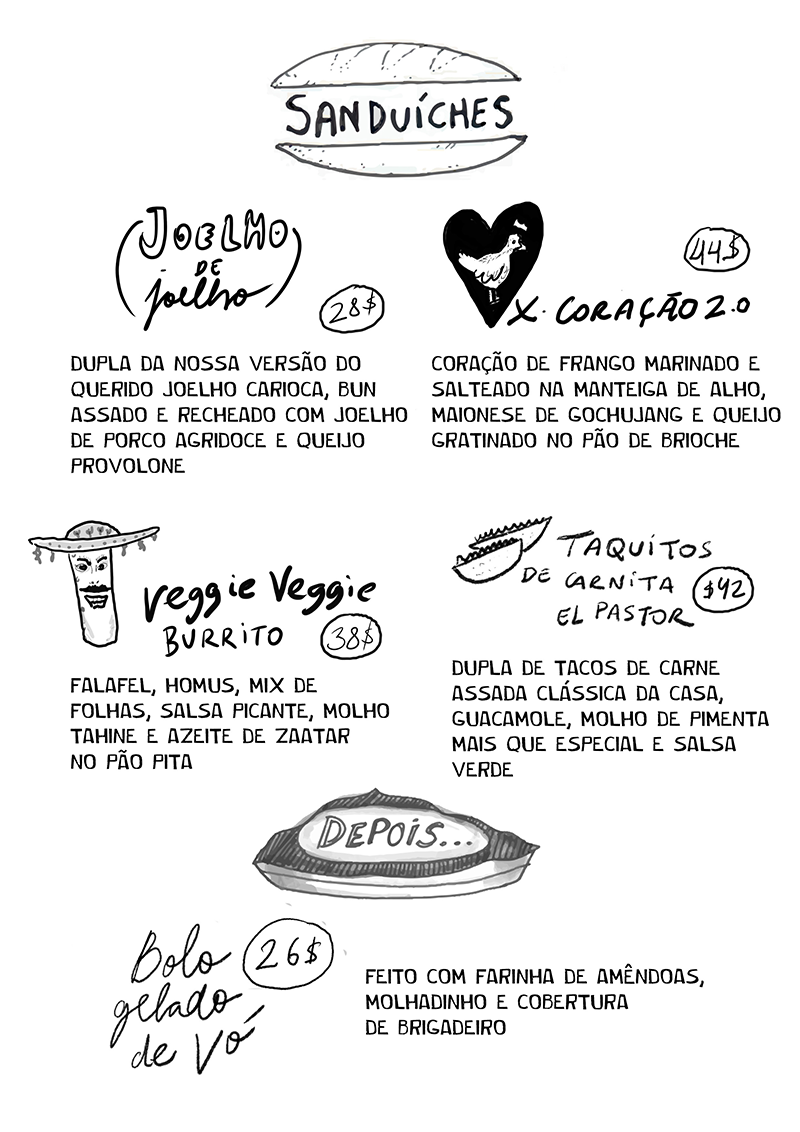 SANDUÍCHES
JOELHO
DE
joelho
28$
DUPLA DA NOSSA VERSÃO DO
QUERIDO JOELHO CARIOCA, BUN
ASSADO E RECHEADO COM JOELHO
DE PORCO AGRIDOCE E QUEIJO
PROVOLONE
44$
X. CORAÇÃO 2.0
CORAÇÃO DE FRANGO MARINADO E
SALTEADO NA MANTEIGA DE ALHO,
MAIONESE DE GOCHUJANG E QUEIJO
GRATINADO NO PÃO DE BRIOCHE
Veggie Veggie
BURRITO
38$
FALAFEL, HOMUS, MIX DE
FOLHAS, SALSA PICANTE, MOLHO
TAHINE E AZEITE DE ZAATAR
NO PÃO PITA
TAQUITOS
DE CARNITA
EL PASTOR
$42
DUPLA DE TACOS DE CARNE
ASSADA CLÁSSICA DA CASA,
GUACAMOLE, MOLHO DE PIMENTA
MAIS QUE ESPECIAL E SALSA
VERDE
DEPOIS...
Bolo
gelado
de Vó
26$
FEITO COM FARINHA DE AMÊNDOAS,
MOLHADINHO E COBERTURA
DE BRIGADEIRO